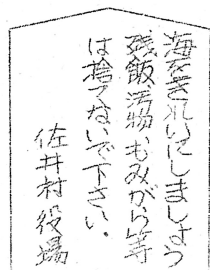 海をきれいにしましょう
残飯、汚物、むみがら等
は捨てないで下さい。
佐井村役場